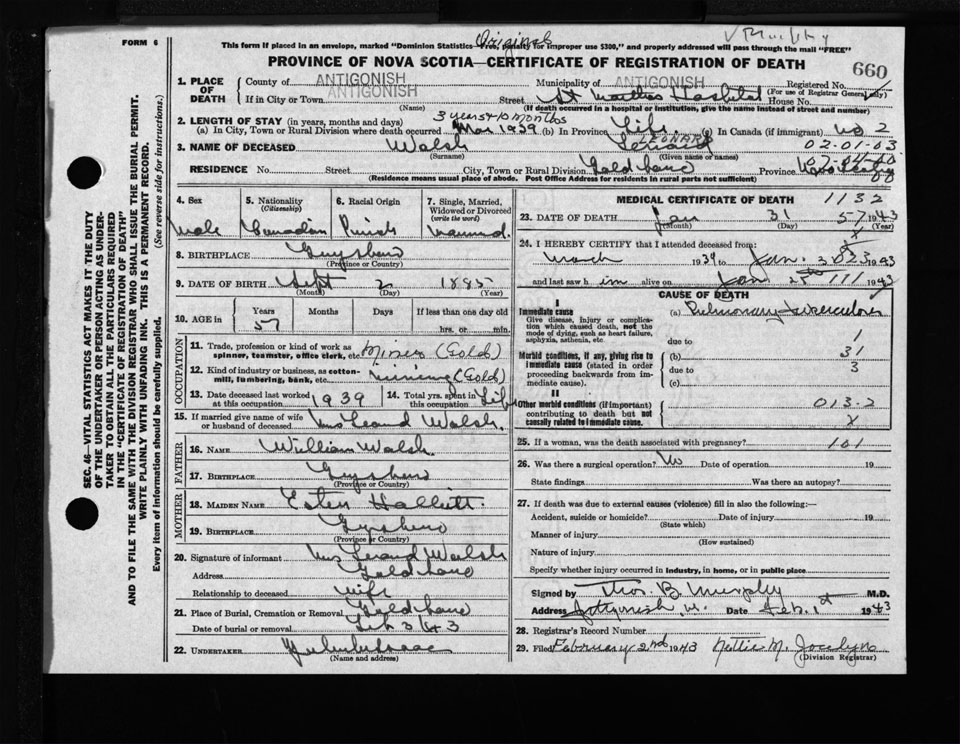 FORM 6
This form if placed in an envelope, marked "Dominion Statistics—Free, penalty for improper use $300," and properly addressed will pass through the mail "FREE"
Original
PROVINCE OF NOVA SCOTIA—CERTIFICATE OF REGISTRATION OF DEATH
660
1. PLACE OF DEATH
County of ANTIGONISH Municipality of ANTIGONISH Registered No.
(For use of Registrar General only)
If in City or Town ANTIGONISH Street St Marthas Hospital House No.
(Name) (If death occurred in a hospital or institution, give the name instead of street and number)
2. LENGTH OF STAY (in years, months and days) 3 years + 10 months
(a) In City, Town or Rural Division where death occurred Mar 1939 (b) In Province Life (c) In Canada (if immigrant) no 2
LEONARD
3. NAME OF DECEASED Walsh 02-01-03
(Surname) (Given name or names)
RESIDENCE No. Street City, Town or Rural Division Goldboro Province Nova Scotia
(Residence means usual place of abode. Post Office Address for residents in rural parts not sufficient)
4. Sex Male
5. Nationality (Citizenship) Canadian
6. Racial Origin
7. Single, Married, Widowed or Divorced (write the word) Married
8. BIRTHPLACE Guysboro
(Province or Country)
9. DATE OF BIRTH Sept 2 1885
(Month) (Day) (Year)
10. AGE in Years 57 Months Days If less than one day old hrs. or min.
OCCUPATION
11. Trade, profession or kind of work as spinner, teamster, office clerk, etc. Miner (Gold)
12. Kind of industry or business, as cotton-mill, lumbering, bank, etc. mining (Gold)
13. Date deceased last worked at this occupation 1939
14. Total yrs. spent in this occupation Life
15. If married give name of wife or husband of deceased Mrs Walsh.
FATHER
16. NAME William Walsh
17. BIRTHPLACE Guysboro
(Province or Country)
MOTHER
18. MAIDEN NAME Hallett
19. BIRTHPLACE Guysboro
(Province or Country)
20. Signature of informant Mrs Walsh
Address Goldboro
Relationship to deceased wife
21. Place of Burial, Cremation or Removal Goldboro
Date of burial or removal Feb 3/43
22. UNDERTAKER
(Name and address)
MEDICAL CERTIFICATE OF DEATH 1132
23. DATE OF DEATH Jan 31 57 1943
(Month) (Day) (Year)
24. I HEREBY CERTIFY that I attended deceased from:
March 1939 to Jan. 1943
and last saw h im alive on Jan 1943
CAUSE OF DEATH
I
Immediate cause
Give disease, injury or complication which caused death, not the mode of dying, such as heart failure, asphyxia, asthenia, etc.
(a) Pulmonary tuberculosis
due to 1
Morbid conditions, if any, giving rise to immediate cause (stated in order proceeding backwards from immediate cause).
(b) 31
due to 3
(c)
II
Other morbid conditions (if important) contributing to death but not causally related to immediate cause.
013-2
X
25. If a woman, was the death associated with pregnancy? 101
26. Was there a surgical operation? No Date of operation 19
State findings Was there an autopsy?
27. If death was due to external causes (violence) fill in also the following:—
Accident, suicide or homicide? Date of injury 19
(State which)
Manner of injury
(How sustained)
Nature of injury
Specify whether injury occurred in industry, in home, or in public place
Signed by Thos. B. Murphy M.D.
Address Antigonish, N.S. Date Feb. 1st 1943
28. Registrar's Record Number
29. Filed February 2nd 1943 Nettie M.
(Division Registrar)
SEC. 46—VITAL STATISTICS ACT MAKES IT THE DUTY
OF THE UNDERTAKER OR PERSON ACTING AS UNDER-
TAKER TO OBTAIN ALL THE PARTICULARS REQUIRED
IN THE "CERTIFICATE OF REGISTRATION OF DEATH"
AND TO FILE THE SAME WITH THE DIVISION REGISTRAR WHO SHALL ISSUE THE BURIAL PERMIT.
WRITE PLAINLY WITH UNFADING INK. THIS IS A PERMANENT RECORD.
Every item of information should be carefully supplied. (See reverse side for instructions.)